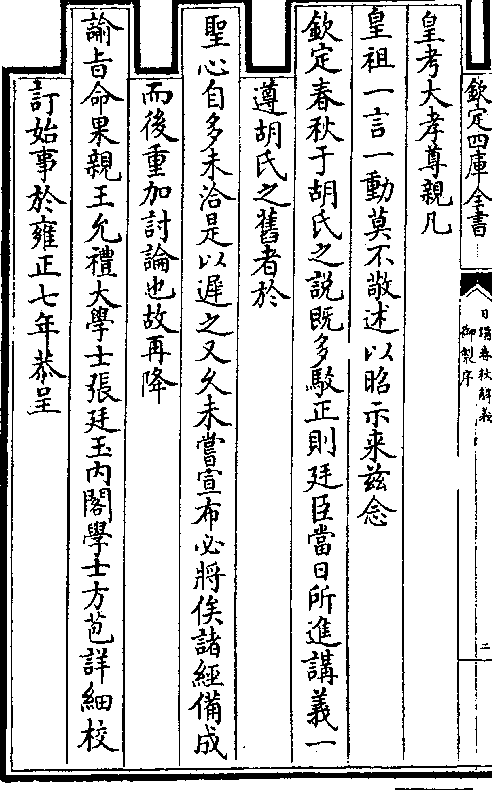 欽定四庫全書
日講春秋解義
御製序
二
皇考大孝尊親凡
皇祖一言一動莫不敬述以昭示来兹念
欽定春秋于胡氏之說既多駮正則廷臣當日所進講義一
遵胡氏之舊者於
聖心自多未洽是以遲之又久未嘗宣布必將俟諸經備成
而後重加討論也故再降
諭旨命果親王允禮大學士張廷玉內閣學士方苞詳細校
訂始事於雍正七年恭呈